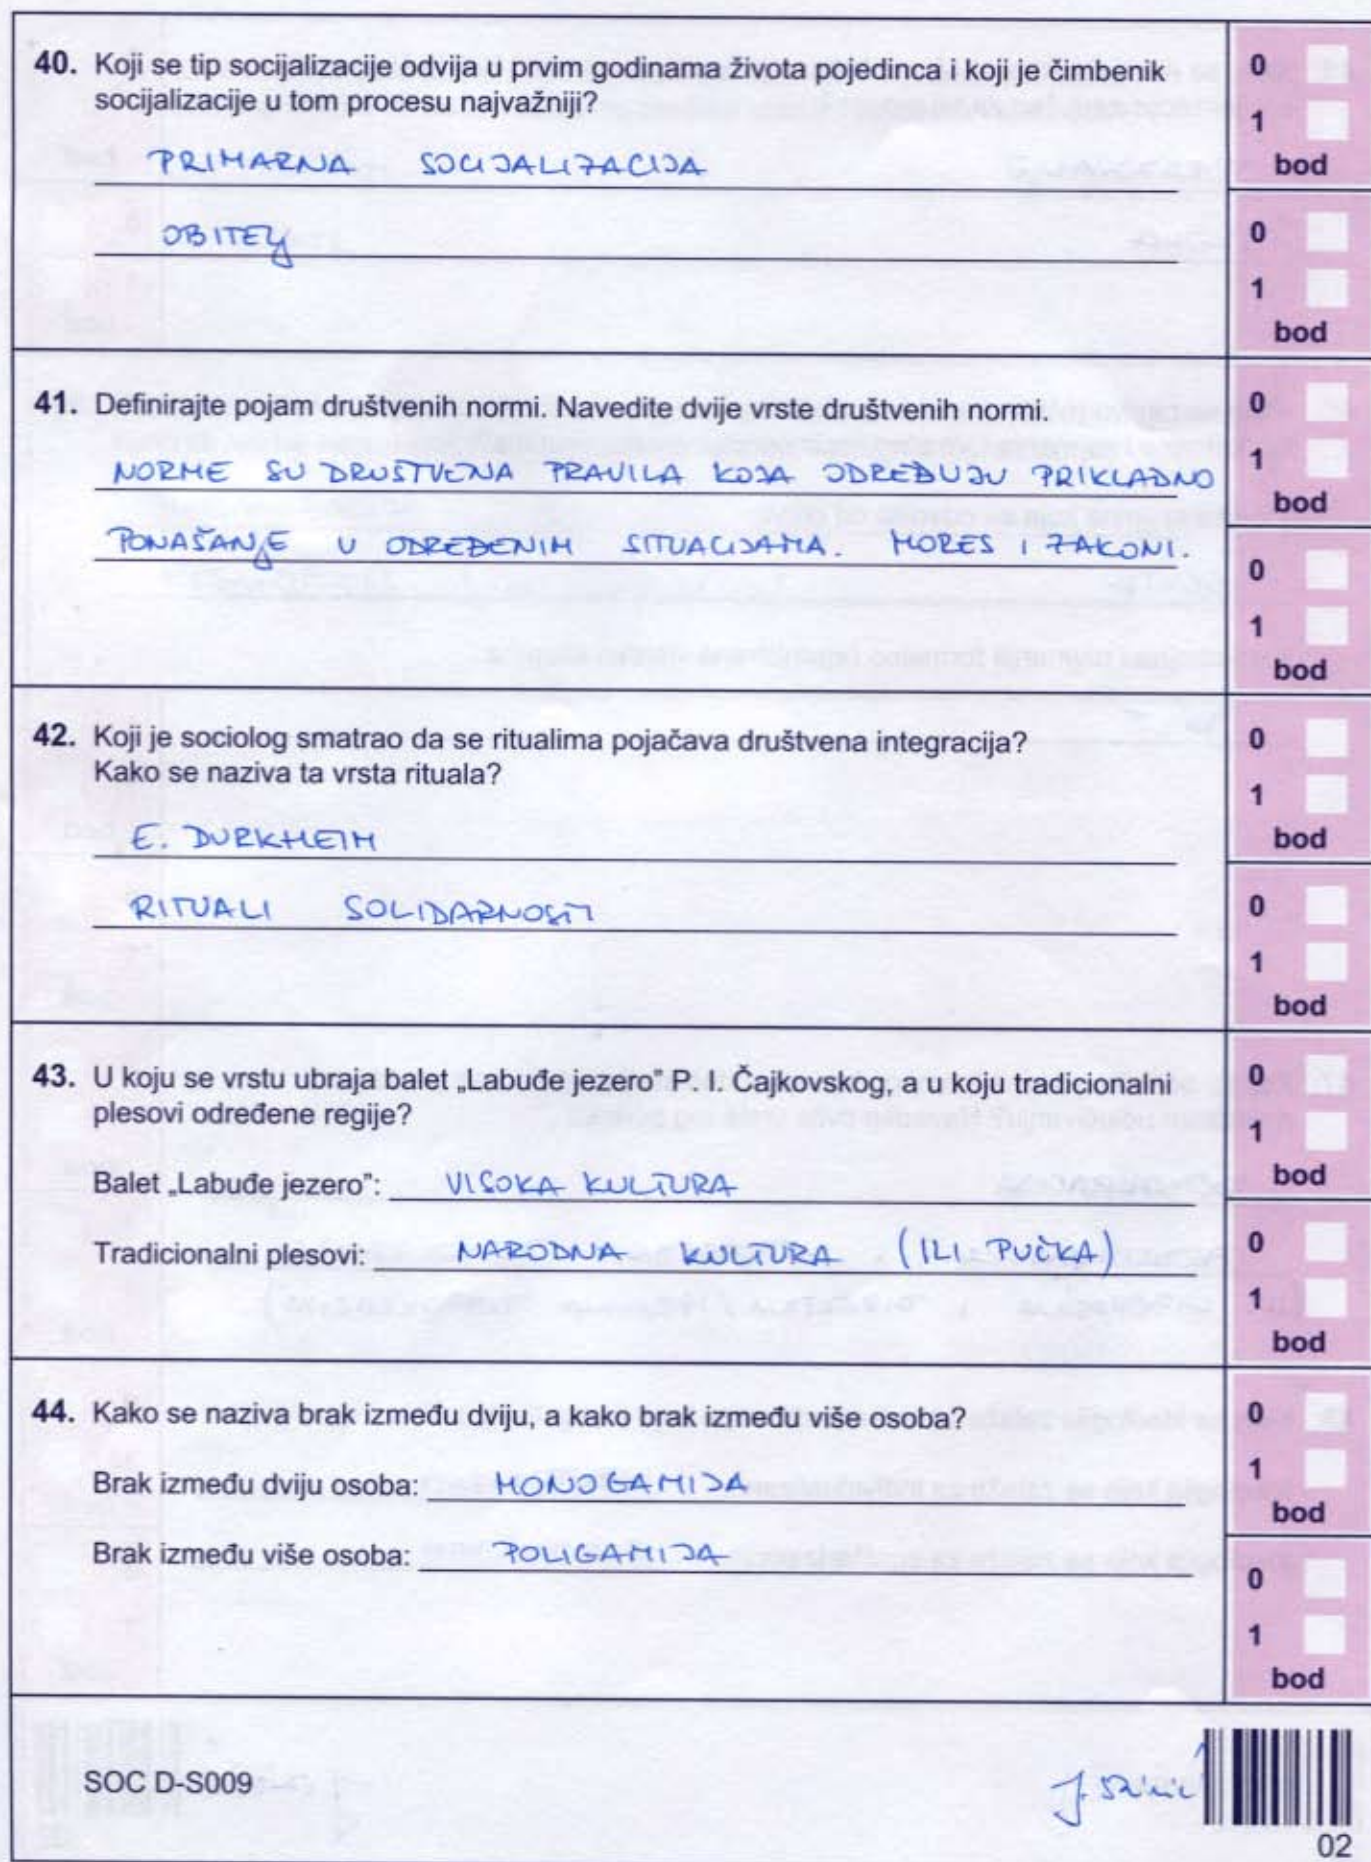 40. Koji se tip socijalizacije odvija u prvim godinama života pojedinca i koji je čimbenik
socijalizacije u tom procesu najvažniji?
PRIMARNA SOCIJALIZACIJA
OBITELJ
0
1
bod
0
1
bod
41. Definirajte pojam društvenih normi. Navedite dvije vrste društvenih normi.
NORME SU DRUŠTVENA PRAVILA KOJA ODREĐUJU PRIKLADNO
PONAŠANJE U ODREĐENIM SITUACIJAMA. MORES I ZAKONI.
0
1
bod
0
1
bod
42. Koji je sociolog smatrao da se ritualima pojačava društvena integracija?
Kako se naziva ta vrsta rituala?
E. DURKHEIM
RITUALI SOLIDARNOSTI
0
1
bod
0
1
bod
43. U koju se vrstu ubraja balet „Labuđe jezero” P. I. Čajkovskog, a u koju tradicionalni
plesovi određene regije?
Balet „Labuđe jezero”: VISOKA KULTURA
Tradicionalni plesovi: NARODNA KULTURA (ILI PUČKA)
0
1
bod
0
1
bod
44. Kako se naziva brak između dviju, a kako brak između više osoba?
Brak između dviju osoba: MONOGAMIJA
Brak između više osoba: POLIGAMIJA
0
1
bod
0
1
bod
SOC D-S009
02